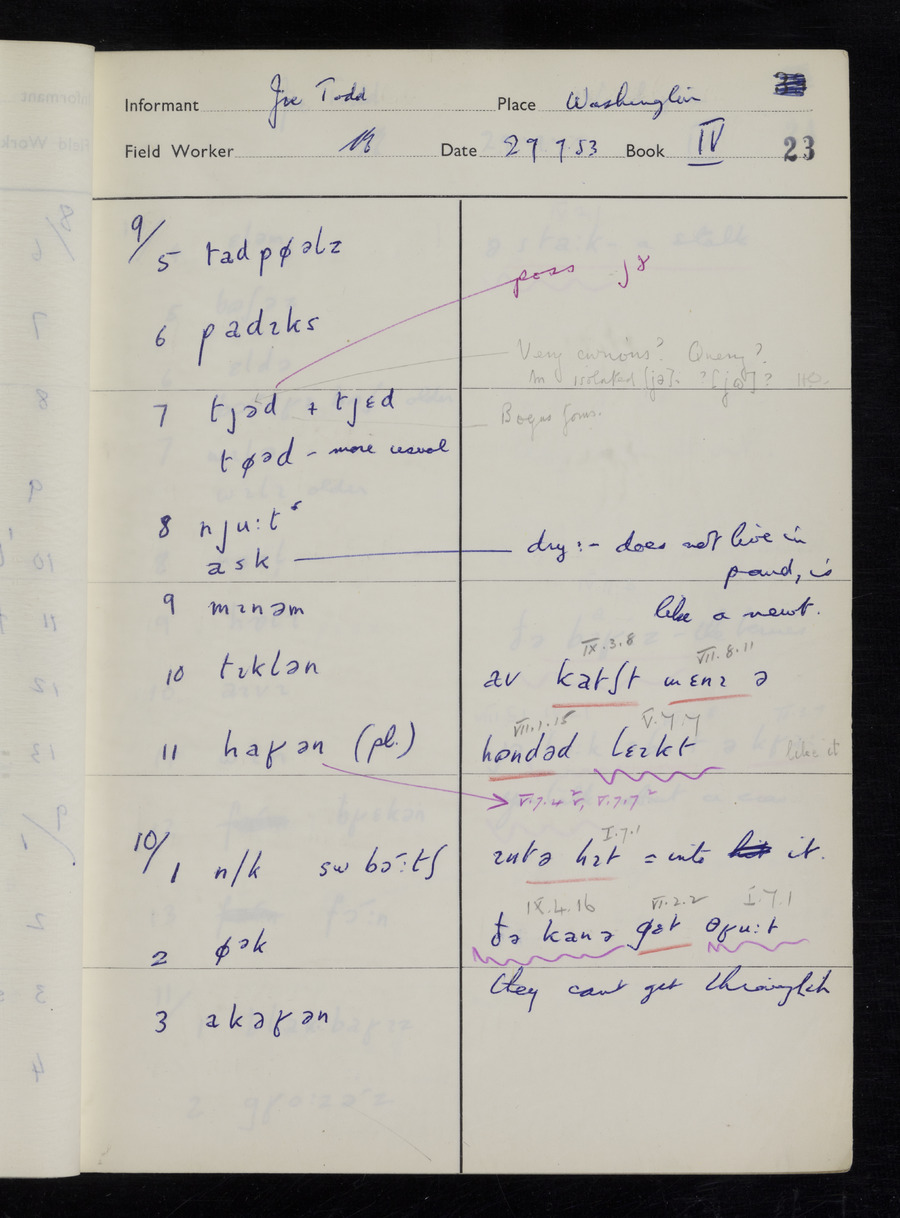 Informant Joe Todd Place Washington
Field Worker Date 29 7 53 Book IV 23
9/
5 tadpøəlz
6 padɪks
poss
Very curious? Query?
In isolated [jə].
7 tjəd + tjɛd
Bogus forms.
tøəd - more usual
8 njuːt
ask
dry :- does not live in
pond, is
like a newt.
9 mɪnəm
10 tɪklən
IX.3.8 VII.8.11
av katʃt mɛnɪ ə
11 haʁən (pl.)
VII.1.15 V.7.7
həndəd lɛɪkt
like it
V.7.4
10/
1 n/k
I.7.1
ɪntə hɪt = into it.
IX.4.16 VI.2.2 I.7.1
2 øək
ðə kanə gɛt θʁuːt
they cant get through it
3 akəʁən